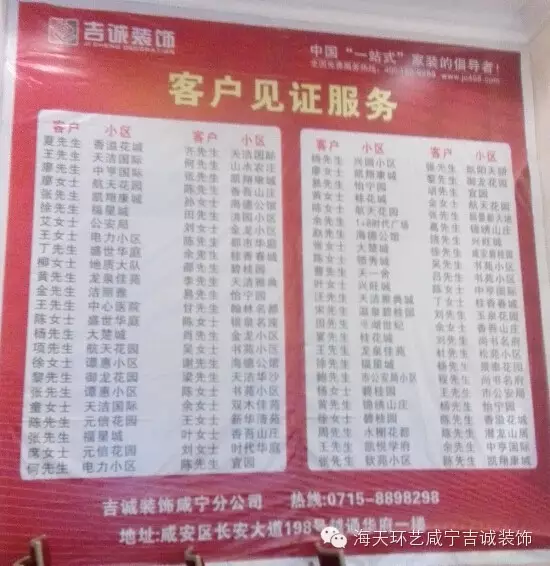 吉诚装饰
JI CHENG DECORATION
中国“一站式”家装的倡导者!
全国免费服务热线:
客户见证服务
客户 小区
夏先生 香溢花城
王先生 天洁国际
廖先生 中亨国际
廖女士 航天花园
张先生 凯翔康城
徐先生 福星城
艾女士 公安局
王女士 电力小区
丁先生 盛世华庭
柳女士 地质大队
黄先生 龙泉佳苑
金先生 洁丽雅
王先生 中心医院
陈女士 盛世华庭
杨先生 大楚城
项先生 航天花园
徐女士 谭惠小区
黎先生 御龙花园
张先生 谭惠小区
童女士 天洁国际
陈先生 元信花园
张先生 福星城
席女士 元信花园
何先生 电力小区
客户 小区
齐先生 天洁国际
何先生 山水农庄
张先生 凯翔康城
陈先生 香吾山庄
孙女士 海德公馆
田先生 洁园小区
刘女士 金龙小区
陈先生 都市华庭
余先生 桂香春城
邵先生 碧桂园
李先生 天洁雅典
易先生 怡宁园
甘先生 翰林名都
陈女士 银泉名座
肖先生 金龙小区
吴女士 书苑小区
谢先生 海德公馆
梁先生 天洁华沙
陈女士 书苑小区
余女士 双木佳苑
王女士 新华清苑
叶女士 香吾山庄
刘女士 时代华庭
陈先生 宜园
客户 小区
杨先生 兴国小区
廖女士 凯翔康城
易先生 怡宁园
黄女士 桂花城
陈女士 航天花园
余先生 1+8时代广场
赵先生 海德公馆
张女士 大楚城
陈女士 德秀城
曹先生 天一舍
叶女士 兴旺城
汪先生 天洁雅典城
宋先生 温泉碧桂园
田先生 半湖世纪
瞿先生 桂花城
王先生 龙泉佳苑
徐先生 福星城
鲍先生 市公安局小区
杨女士 碧桂园
黄先生 锦绣山庄
徐女士 碧桂园
周先生 水榭花都
王先生 凯悦学府
张先生 钦苑小区
客户 小区
黎先生 御龙花园
胡先生 宜园
金女士 航天花园
高先生 锦绣山庄
姚先生 兴旺城
吴先生 书苑小区
陈女士 中亨国际
丁女士 桂香春城
刘先生 玉泉花园
余女士 香吾山庄
刘先生 尚书名府
杜先生 松苑小区
杨先生 景泰花园
程先生 尚书名府
王先生 市公安局
杨先生 怡宁园
陈先生 香溢花城
陈先生 潜龙山居
余女士 中亨国际
陈先生 凯翔康城
吉诚装饰咸宁分公司 热线:0715-8898298
地址:咸安区长安大道198号 华府一楼
海天环艺咸宁吉诚装饰